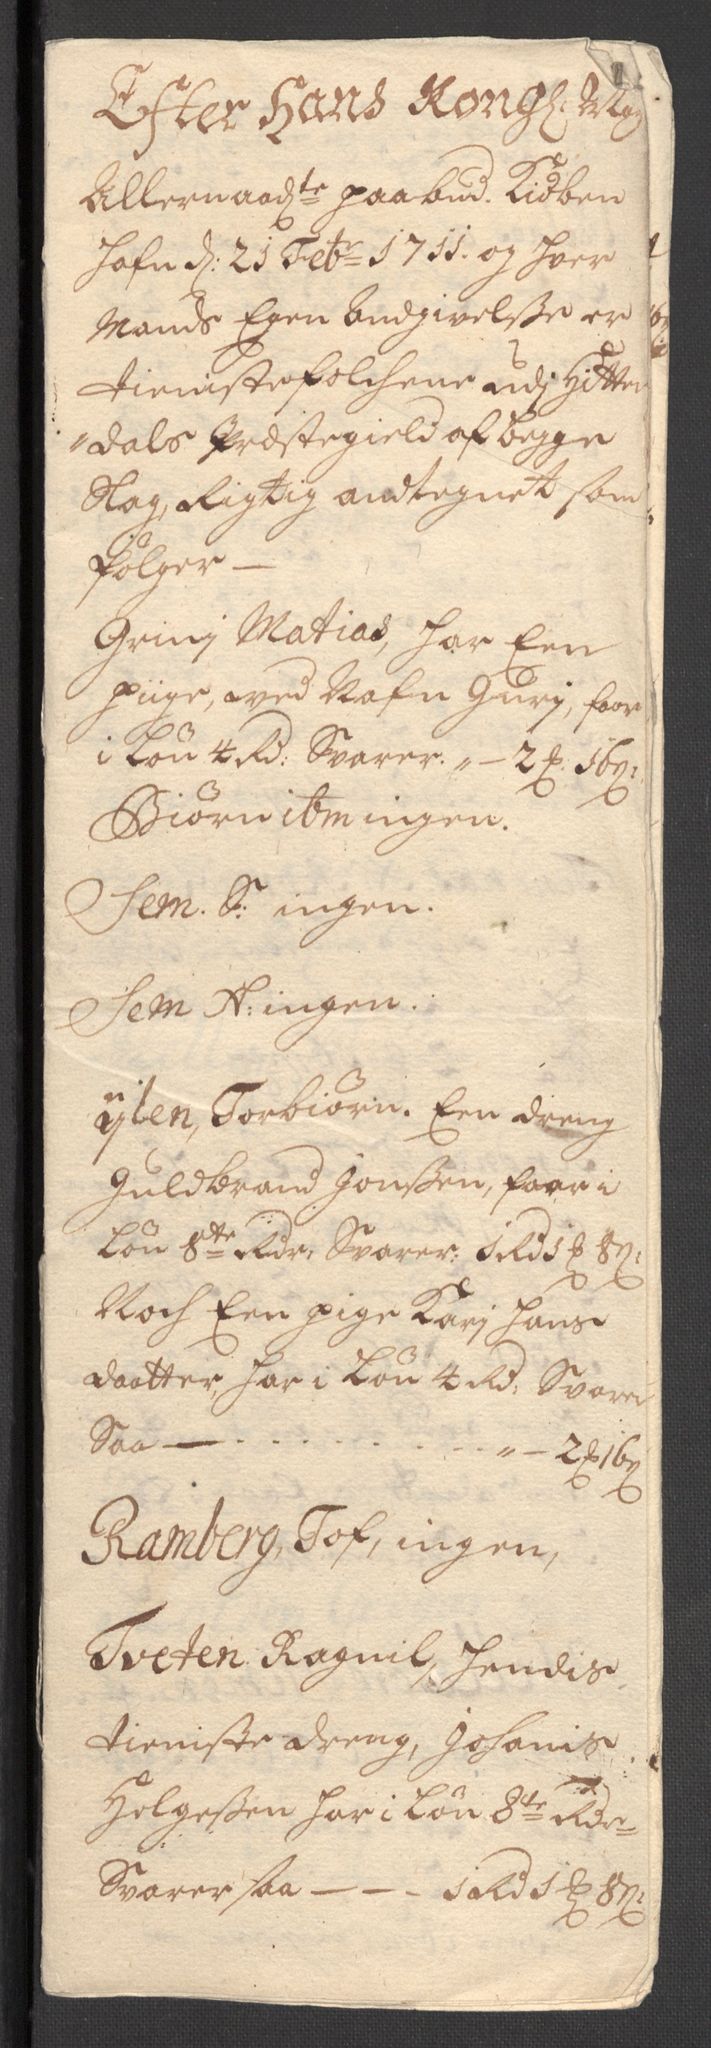 Efter Hans Kongl: May
Allernaadste paabud. Kiøben
hafn d: 21 Febr 1711. og hver
Mands Egen Andgivelsse er
tienistefolchene udj Hitter
"dals Præstegield af begge
Slag, Rigtig andtegnet som
følger —
Grinj Matias, har Een
piige, ved Nafn Gurj, faar
i Løn 4 Rd: Svarer. " — 2 ß. 16 ß:
Biørn ibm ingen.
Sem. S: ingen.
Sem N: ingen.
ÿlen, Torbiørn. Een dreng
Guldbrand Jonssen, faar i
Løn 8te Rdr. Svarer: 1 Rd 1 ß 8 ß:
Noch Een pige Karj Hans
daatter, har i Løn 4 Rd: Svarer
Saa — . . . . . . . " — 2 ß 16 ß
Ramberg, Tof, ingen,
Tveten Ragnil, hendis
tieniste dreng, Johanis
Helgessen har i Løn 8te Rdr
Svarer saa — — - 1 Rd 1 ß 8 ß: